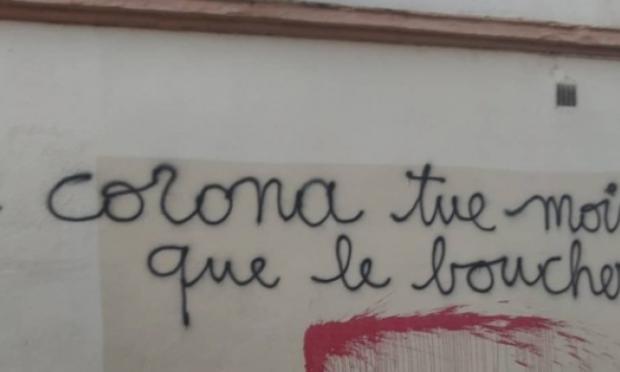 corona tue moi
que le bouche